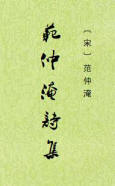 〔宋〕范仲淹
範仲淹詩集